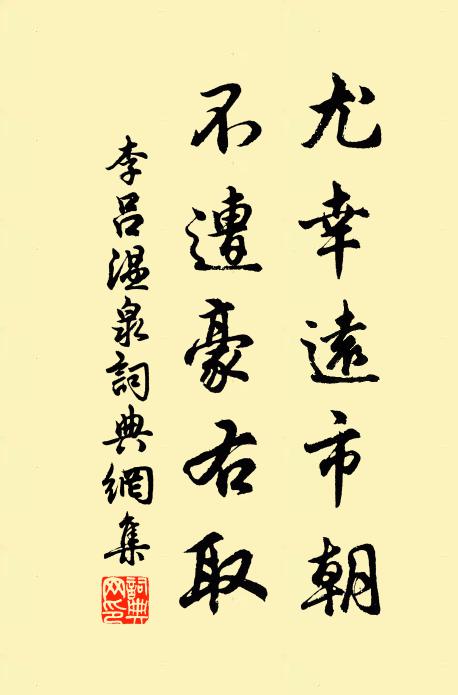 尤幸遠市朝
不遭豪右取
李呂溫泉詞典網集
詞典
网印